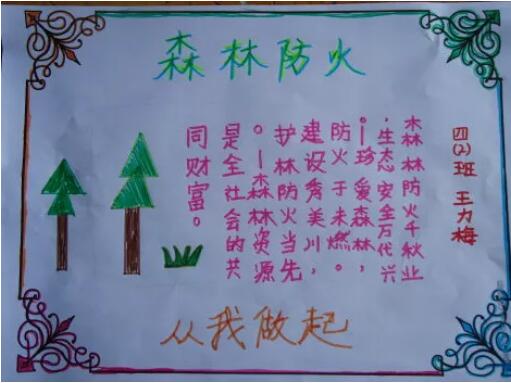 森林防火
四(2)班 王力梅
森林防火千秋业
.生态安全万代兴
。|珍爱森林,
防火于未燃。
建设秀美川,
护林防火当先
。|森林资源
是全社会的共
同财富。
从我做起